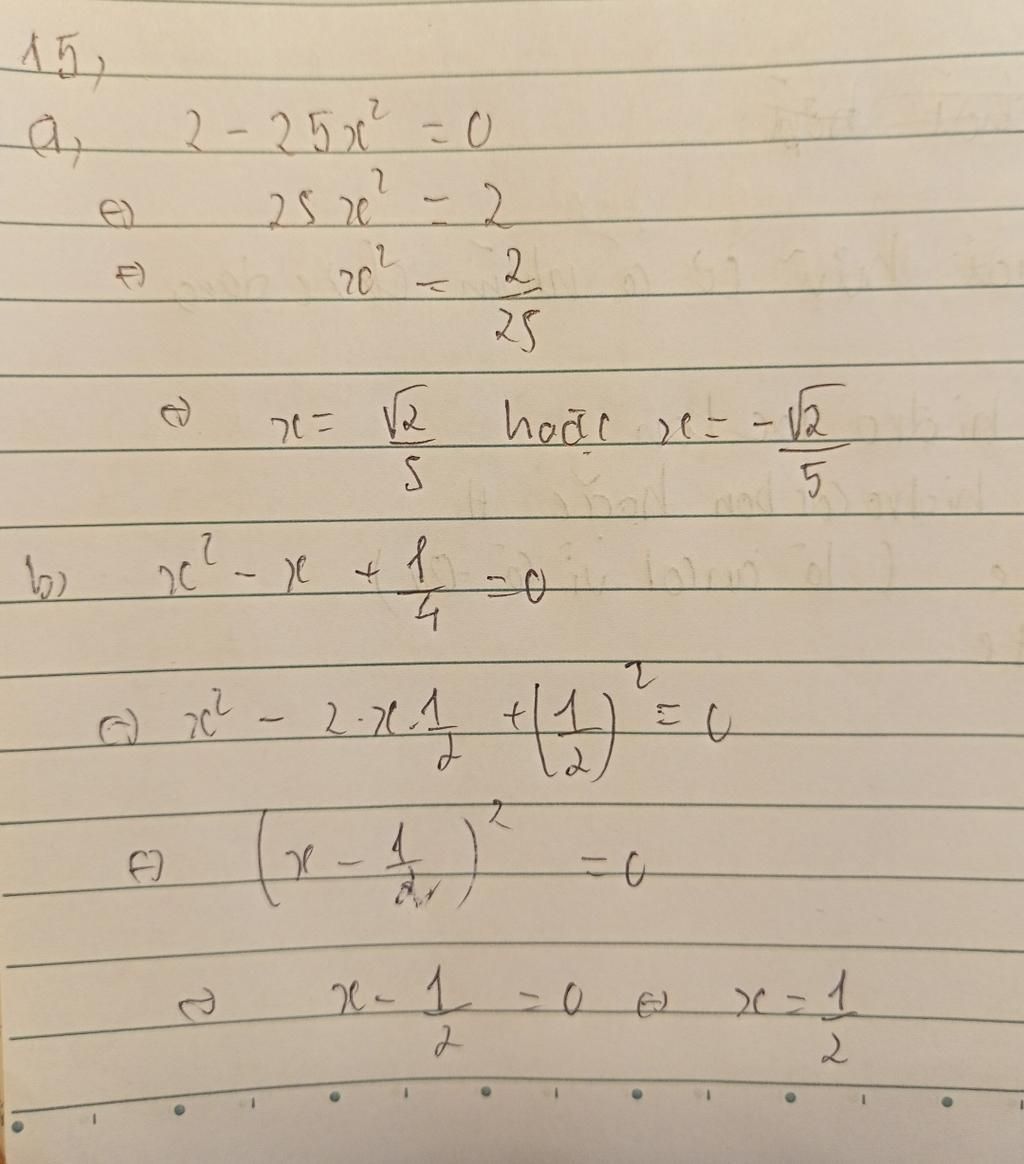 15,
a, 2 - 25x² = 0
⇔ 25x² = 2
⇔ x² = 2/25
⇔ x = √2/5 hoặc x = -√2/5
b, x² - x + 1/4 = 0
⇔ x² - 2·x·1/2 + (1/2)² = 0
⇔ (x - 1/2)² = 0
⇔ x - 1/2 = 0 ⇔ x = 1/2